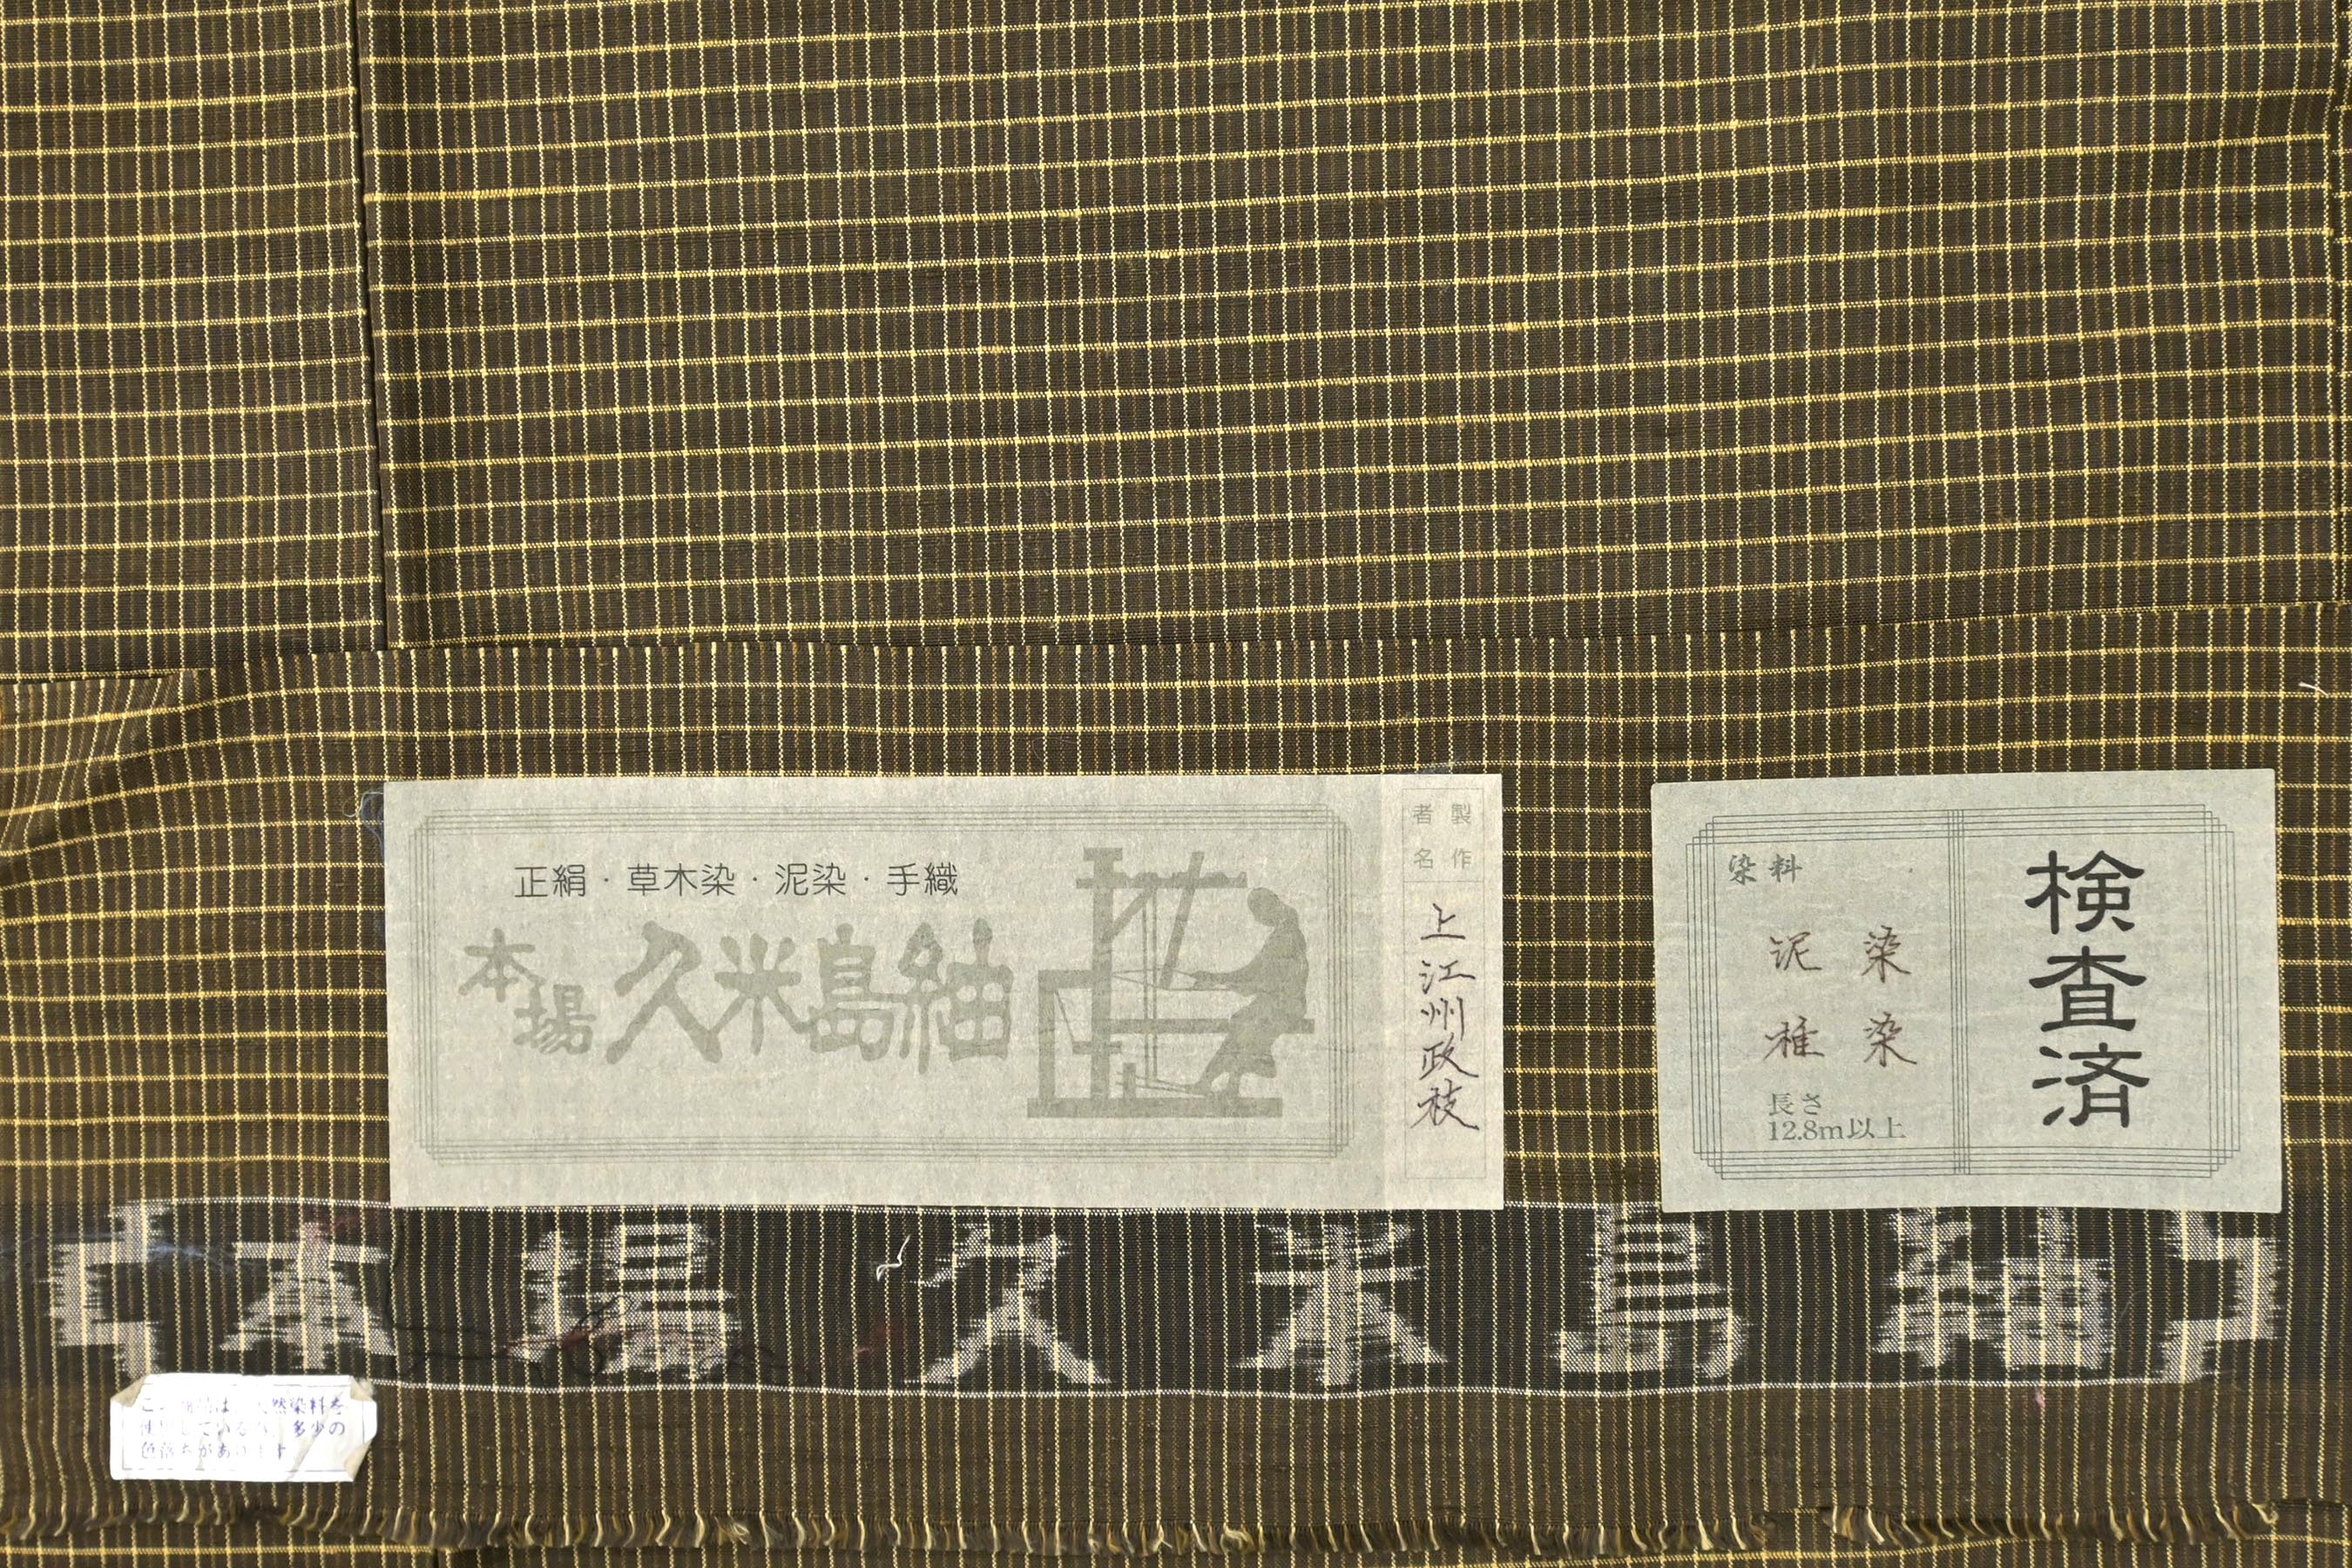 正絹・草木染・泥染・手織
本場久米島紬
製作
者名
上江州政枝
検査済
染料
泥染
椎染
長さ
12.8m以上
本場久米島紬
は 天然染料を
している 多少の
色落ちがあります